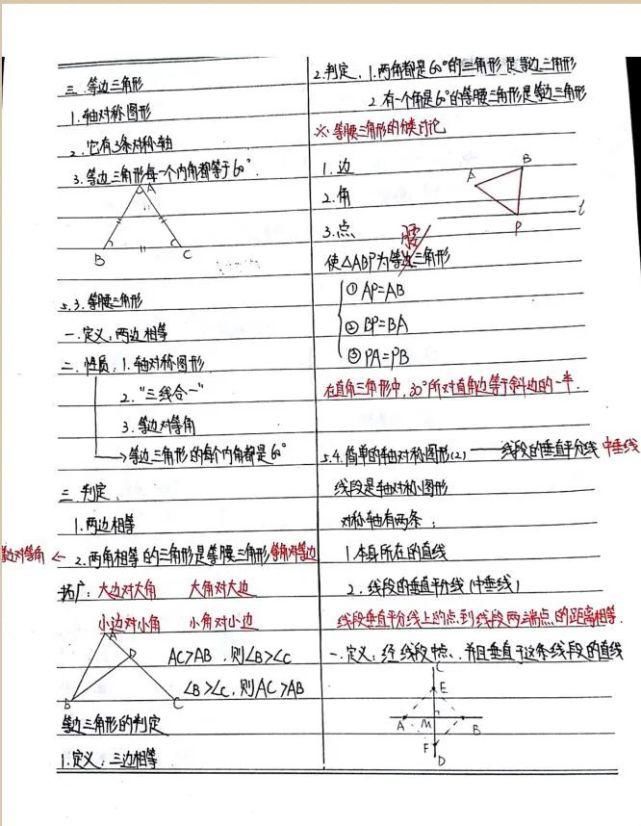 三. 等边三角形
1.轴对称图形
2.它有3条对称轴
3.等边三角形每一个内角都等于60°.
A
B
C
5.3.等腰三角形
一.定义:两边相等
二.性质:1.轴对称图形
2."三线合一"
3.等边对等角
→等边三角形的每个内角都是60°
三.判定
1.两边相等
对等角 ← 2.两角相等的三角形是等腰三角形 等角对等边
拓广:大边对大角 大角对大边
小边对小角 小角对小边
A
D
B
C
AC>AB,则∠B>∠C
∠B>∠C,则AC>AB
等边三角形的判定
1.定义:三边相等
2.判定.1.两角都是60°的三角形是等边三角形
2.有一个角是60°的等腰三角形是等边三角形
※等腰三角形的分类讨论
1.边
2.角
3.点
A
B
P
l
腰
使△ABP为等边三角形
①AP=AB
②BP=BA
③PA=PB
在直角三角形中,30°所对直角边等于斜边的一半.
5.4.简单的轴对称图形(2)——线段的垂直平分线 中垂线
线段是轴对称图形
对称轴有两条:
1.本身所在的直线
2.线段的垂直平分线(中垂线)
线段垂直平分线上的点到线段两端点的距离相等.
一.定义:经线段中点,并且垂直于这条线段的直线
C
E
A
M
B
F
D